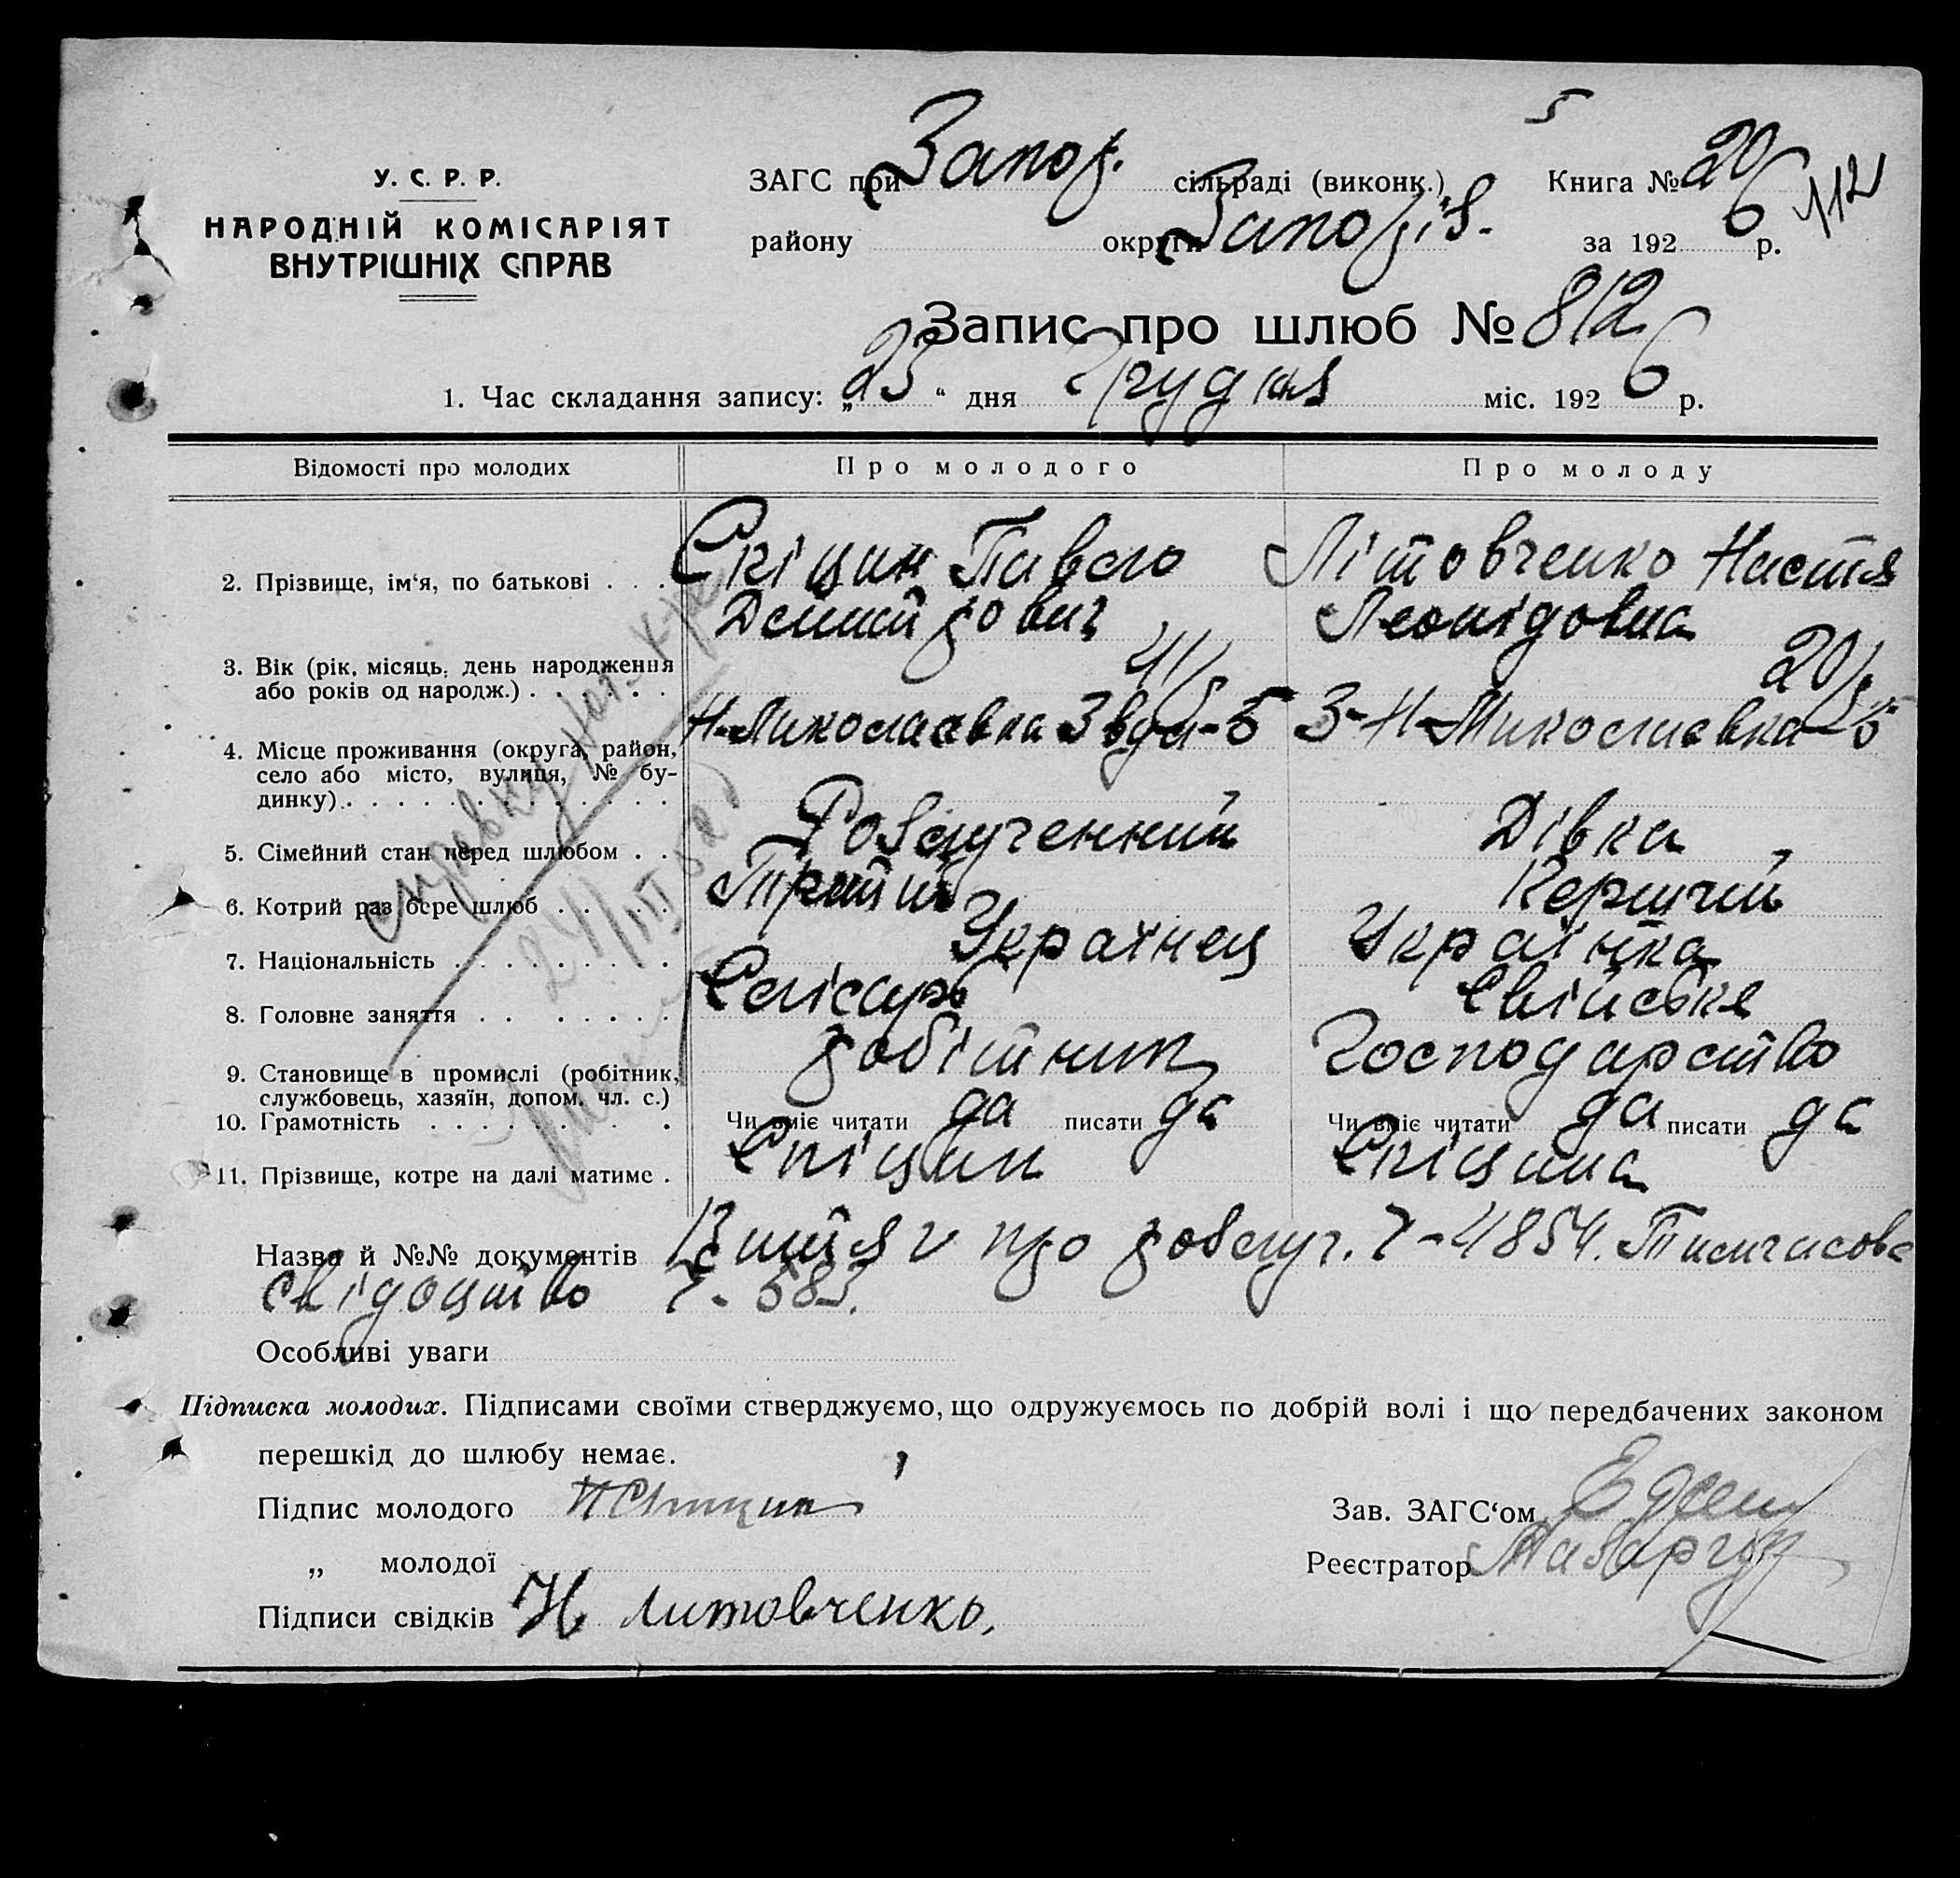 5
У. С. Р. Р.
НАРОДНІЙ КОМІСАРІЯТ
ВНУТРІШНІХ СПРАВ
ЗАГС при Запор. сільраді (виконк.) Книга № 20
112
району округи Запоріз. за 1926 р.
Запис про шлюб № 812
1. Час складання запису: „23“ дня Грудня міс. 1926 р.
Відомості про молодих Про молодого Про молоду
2. Прізвище, ім‘я, по батькові . . . Спіцин Павло Літовченко Настя
Дмитрович Леонідовна
3. Вік (рік, місяць, день народження
або років од народж.) . . . . . . 41 20
4. Місце проживання (округа, район, Н-Миколаєвка З-Н-Миколаєвка
село або місто, вулиця, № бу-
динку) . . . . . . . . . . . . .
5. Сімейний стан перед шлюбом . . Розлученний Дівка
6. Котрий раз бере шлюб . . . . . Третий Перший
7. Національність . . . . . . . . . Українец Українка
8. Головне заняття . . . . . . . . Слісарь Свійське
9. Становище в промислі (робітник, робітник Господарство
службовець, хазяїн, допом. чл. с.)
10. Грамотність . . . . . . . . Чи вміє читати да писати да Чи вміє читати да писати да
11. Прізвище, котре на далі матиме . Спіцин Спіцина
Назва й №№ документів Витяг про розлуч. 4854. Тимчасове
свідоцтво 583.
Особливі уваги
Підписка молодих. Підписами своїми стверджуємо, що одружуємось по добрій волі і що передбачених законом
перешкід до шлюбу немає.
Підпис молодого П Спицин Зав. ЗАГС‘ом
„ молодої Реєстратор
Підписи свідків Н Литовченко.